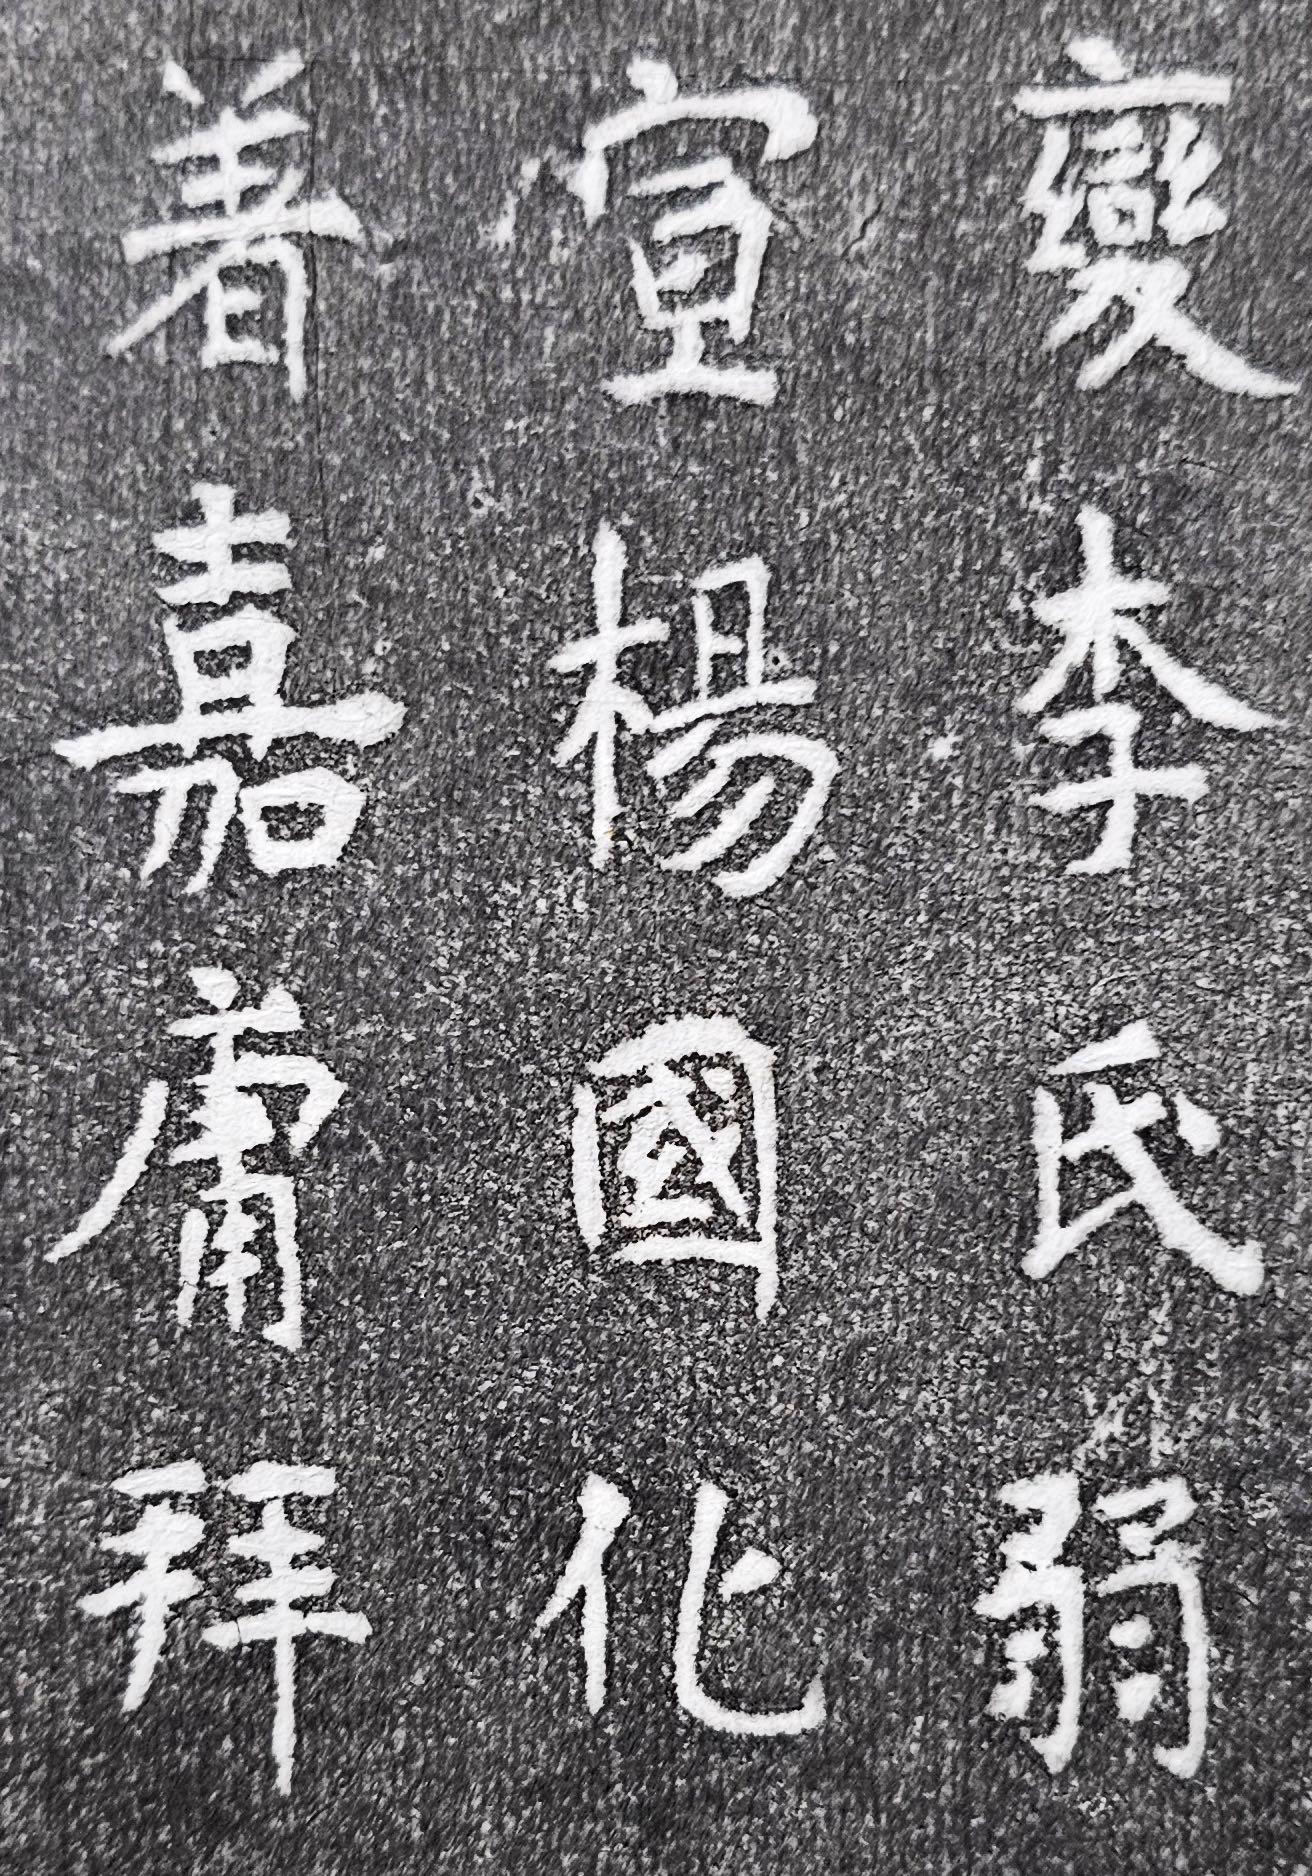 變李氏弱
宣楊國化
着嘉庸拜